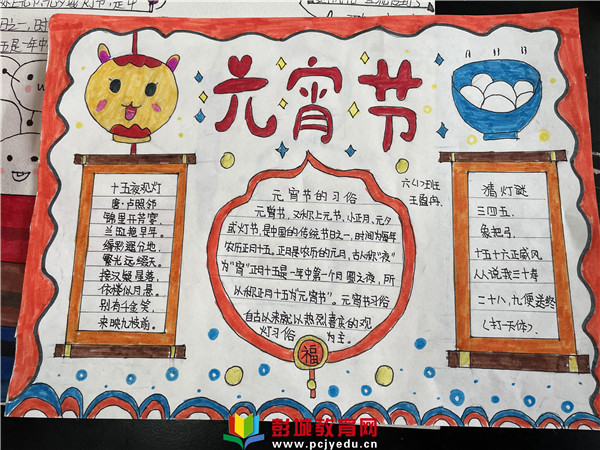 元宵节
六(1)班
十五夜观灯
唐·卢照邻
锦里开芳宴
兰缸艳早年。
缛彩遥分地,
繁光远缀天。
接汉疑星落,
依楼似月悬。
别有千金笑,
来映九枝前。
元宵节的习俗
元宵节,又称上元节,小正月、元夕
或灯节,是中国的传统节日之一,时间为每年
农历正月十五,正月是农历的元月,古人称“夜”
为“宵”正月十五是一年中第一个月圆之夜,所
以称正月十五为“元宵节”。元宵节习俗
自古以来就以热烈喜庆的观
灯习俗 为主。
福
猜灯谜
三四五,
象把弓,
十五十六正威风,
人人说我三十寿
二十八,九便送终
(打一天体)
彭城教育网
www.pcjyedu.cn